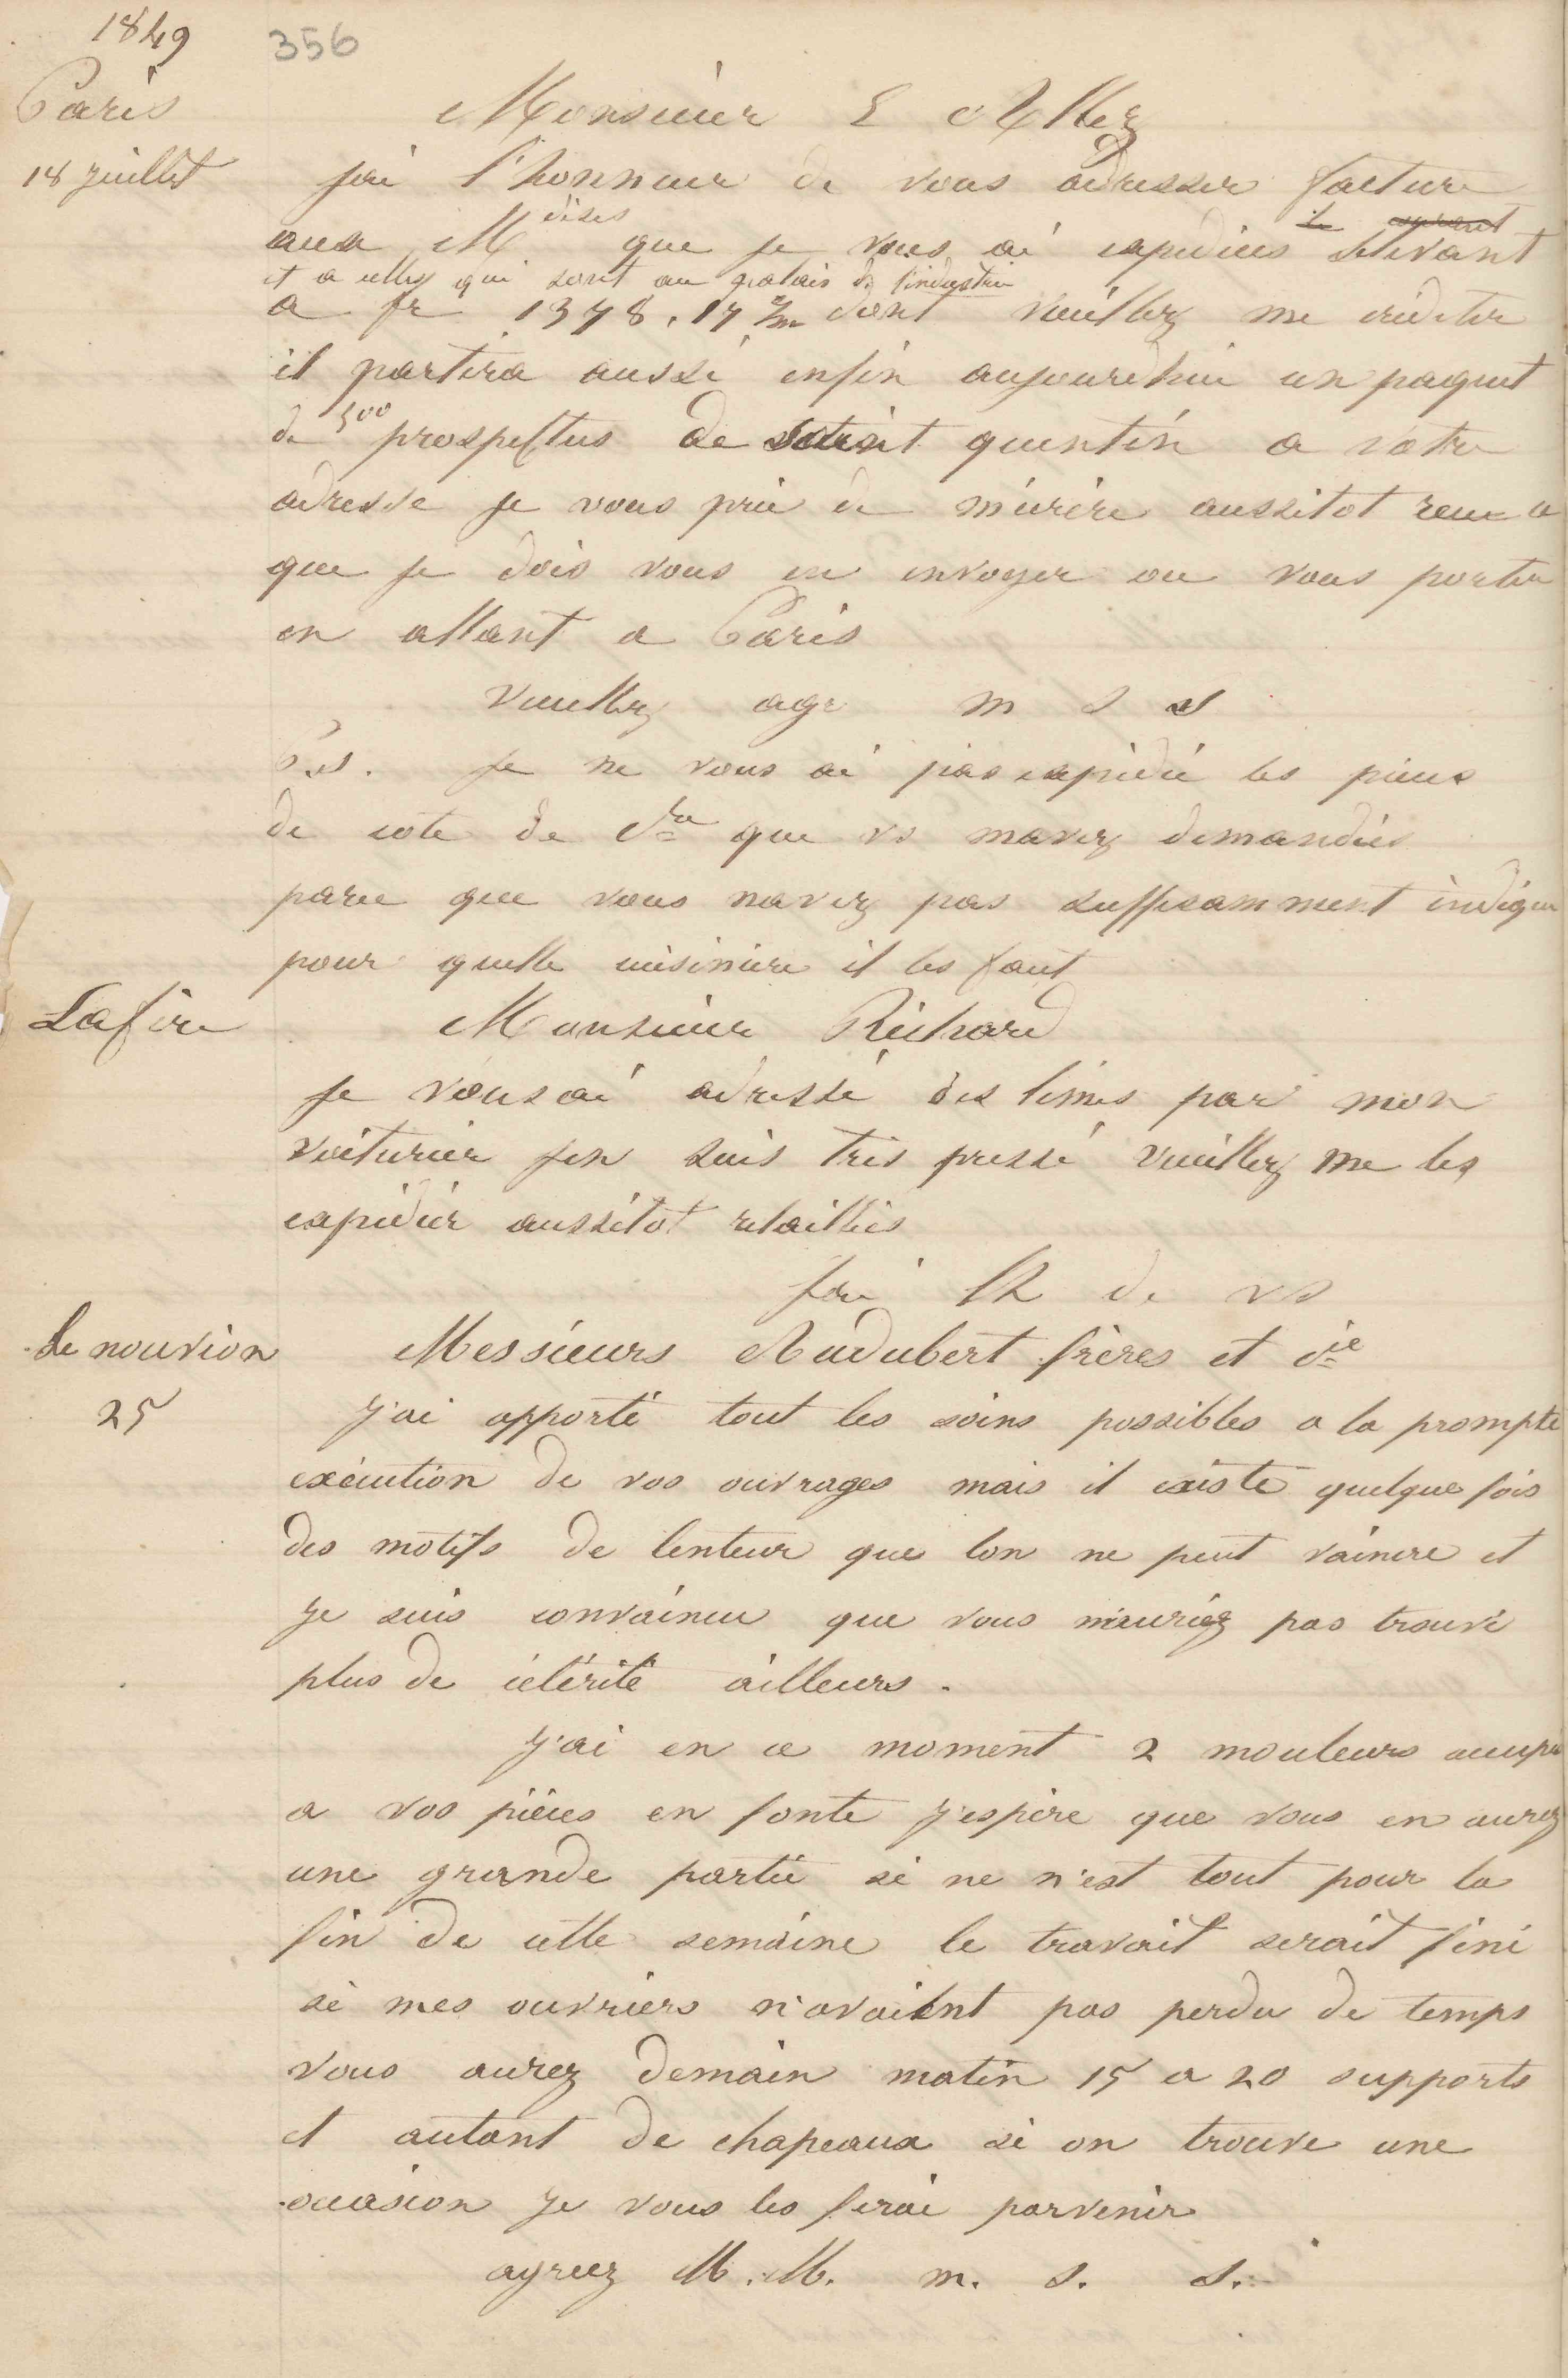 1849
356
Paris
Monsieur E Allez
18 juillet
jai l'honneur de vous adresser facture
aux Mdises que je vous ai expediees se levant
et a celles qui sont au palais de l'industrie
a fr 1378,17 dont veuillez me créditer
il partira aussi enfin aujourdhui un paquet
de 500 prospectus de saint quentin a votre
adresse je vous prie de mécrire aussitot recu a
que je dois vous en envoyer ou vous porter
en allant a Paris
veuillez agr m s s
P.s. je ne vous ai pas expédié les pieces
de cote de que vs mavez demandées
parce que vous navez pas suffisamment indique
pour quelle cuisiniere il les faut
Lafere
Monsieur Richard
je vous ai adressé des limes par mon
voiturier jen suis très pressé veuillez me les
expédier aussitot retaillées
jai lh de vs
Le nouvion
Messieurs Audubert frères et Cie
25
j'ai apporté tout les soins possibles a la prompte
exécution de vos ouvrages mais il existe quelque fois
des motifs de lenteur que lon ne peut vaincre et
je suis convaincu que vous n'auriez pas trouvé
plus de célérité ailleurs.
j'ai en ce moment 2 mouleurs occupés
a vos pièces en fonte j'espère que vous en aurez
une grande partie si ne n'est tout pour la
fin de cette semaine le travail serait fini
si mes ouvriers n'avaient pas perdu de temps
vous aurez demain matin 15 a 20 supports
et autant de chapeaux si on trouve une
occasion je vous les ferai parvenir
agreez M.M. m. s. s.